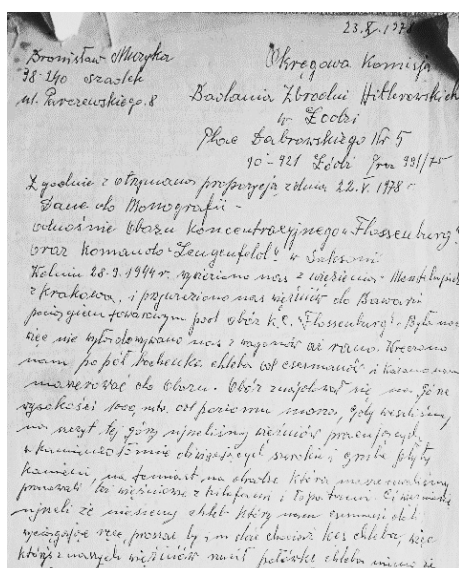 23.X.1978
Bronisław Muzyka
98-240 Szadek
ul. Parczewskiego 8
Okręgowa Komisja
Badania Zbrodni Hitlerowskich
w Łodzi
Plac Dąbrowskiego Nr 5
90-921 Łódź
Zgodnie z otrzymaną propozycją z dnia 22.V.1978 r
Dane do Monografii -
odnośnie obozu koncentracyjnego "Flossenburg"
oraz komando "Lengenfeld" w Saksonii
W dniu 28.9.1944 r. wywieziono nas z więzienia - Montelupich
z Krakowa, i przywieziono nas więźniów do Bawarii
pociągiem towarowym pod obóz k.c. "Flossenburg". Była noc
więc nie wyładowywano nas z wagonów aż rano. Wręczono
nam po pół bochenka chleba od esesmanów i kazano nam
maszerować do obozu. Obóz znajdował się na górze
wysokości 1000 mtr. od poziomu morza, gdy weszliśmy
na szczyt tej góry ujrzeliśmy więźniów pracujących
w kamieniołomie dźwigających szerokie i grube płyty
kamieni, natomiast na drodze którą maszerowaliśmy
pracowali też więźniowie z kilofami i łopatami. Ci więźniowie
ujrzeli że niesiemy chleb który nam esesmani dali
wyciągając ręce, prosząc by im dać chociaż kęs chleba, więc
któryś z naszych więźniów rzucił połówkę chleba